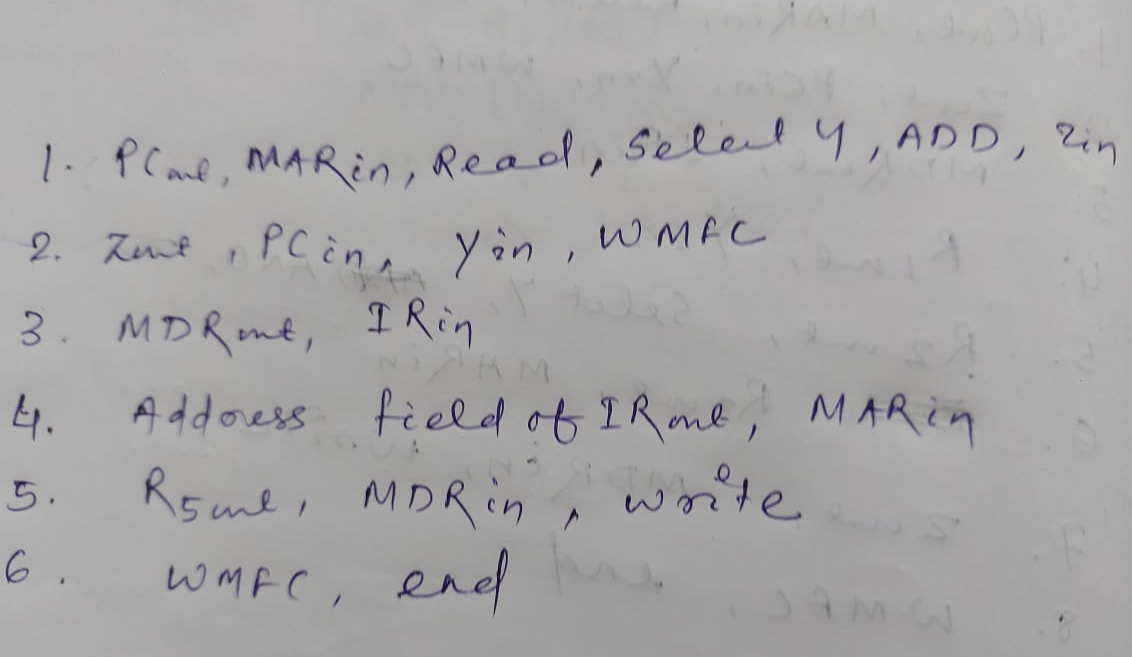 1. PCout, MARin, Read, Select 4, ADD, Zin
2. Zout, PCin, Yin, WMFC
3. MDRout, IRin
4. Address field of IRout, MARin
5. R5out, MDRin, write
6. WMFC, end